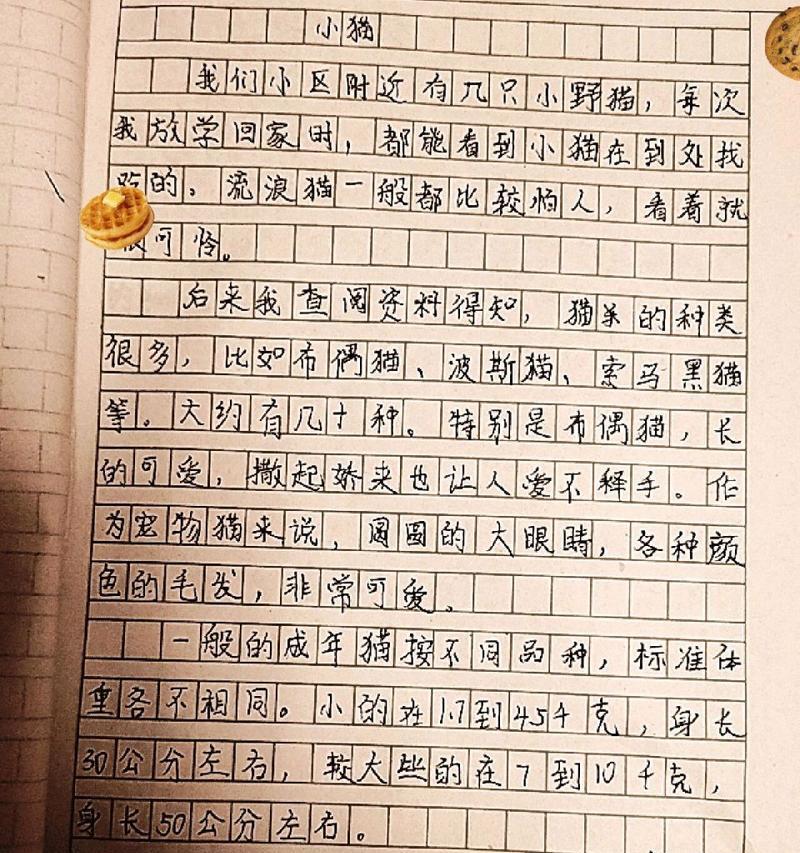 小猫
我们小区附近有几只小野猫，每次
我放学回家时，都能看到小猫在到处找
吃的、流浪猫一般都比较怕人，看着就
可怜。
后来我查阅资料得知，猫类的种类
很多，比如布偶猫、波斯猫、索马黑猫
等。大约有几十种。特别是布偶猫，长
的可爱，撒起娇来也让人爱不释手。作
为宠物猫来说，圆圆的大眼睛，各种颜
色的毛发，非常可爱、
一般的成年猫按不同品种，标准体
重各不相同。小的在1.7到4.5千克，身长
30公分左右，较大些的在7到10千克，
身长50公分左右。